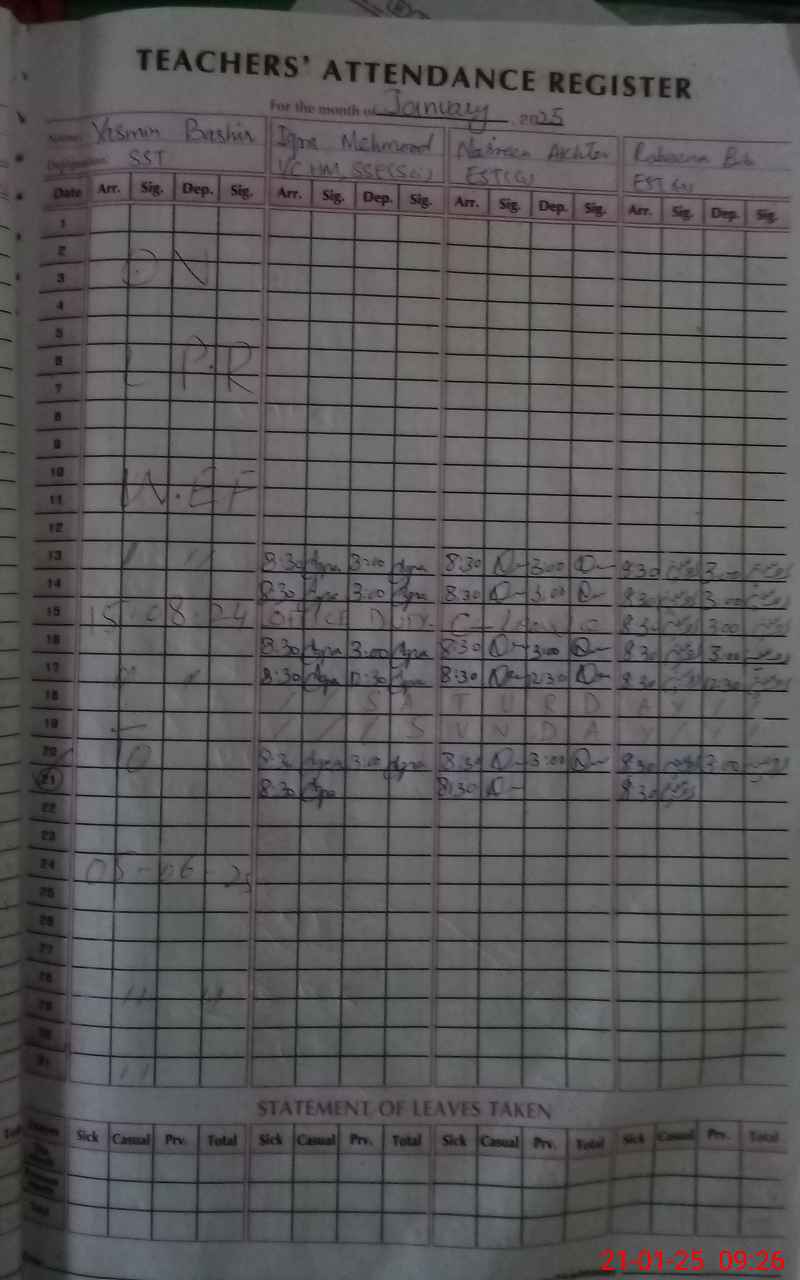 TEACHERS' ATTENDANCE REGISTER
For the month of January, 2025
Name: Yasmin Bashir Iqra Mehmood Nasreen Akhter
Designation SST I/C HM, SSE(Sci) EST(G)
Date Arr. Sig. Dep. Sig. Arr. Sig. Dep. Sig. Arr. Sig. Dep. Sig. Arr. Sig. Dep. Sig.
1
2
3 ON
4
5
6
7 L P.R
8
9
10
11 W.E.F
12
13 " " 8:30 Iqra 3:00 Iqra 8:30 3:00 8:30 3:00
14 8:30 Iqra 3:00 Iqra 8:30 3:00 8:30 3:00
15 15.08.24 Office Duty C-leave 8:30 3:00
16 8:30 Iqra 3:00 Iqra 8:30 3:00 8:30 3:00
17 " " 8:30 Iqra 12:30 Iqra 8:30 12:30 8:30 12:30
18 / / S A T U R D A Y / /
19 / / / S U N D A Y / /
20 To 8:30 Iqra 3:00 Iqra 8:30 3:00 8:30 3:00
21 8:30 Iqra 8:30 8:30
22
23
24 05-06-25
25
26
27
28
29 " "
30
31 "
STATEMENT OF LEAVES TAKEN
Sick Casual Prv. Total Sick Casual Prv. Total Sick Casual Prv. Total Sick Casual Prv. Total
Total
21-01-25 09:26